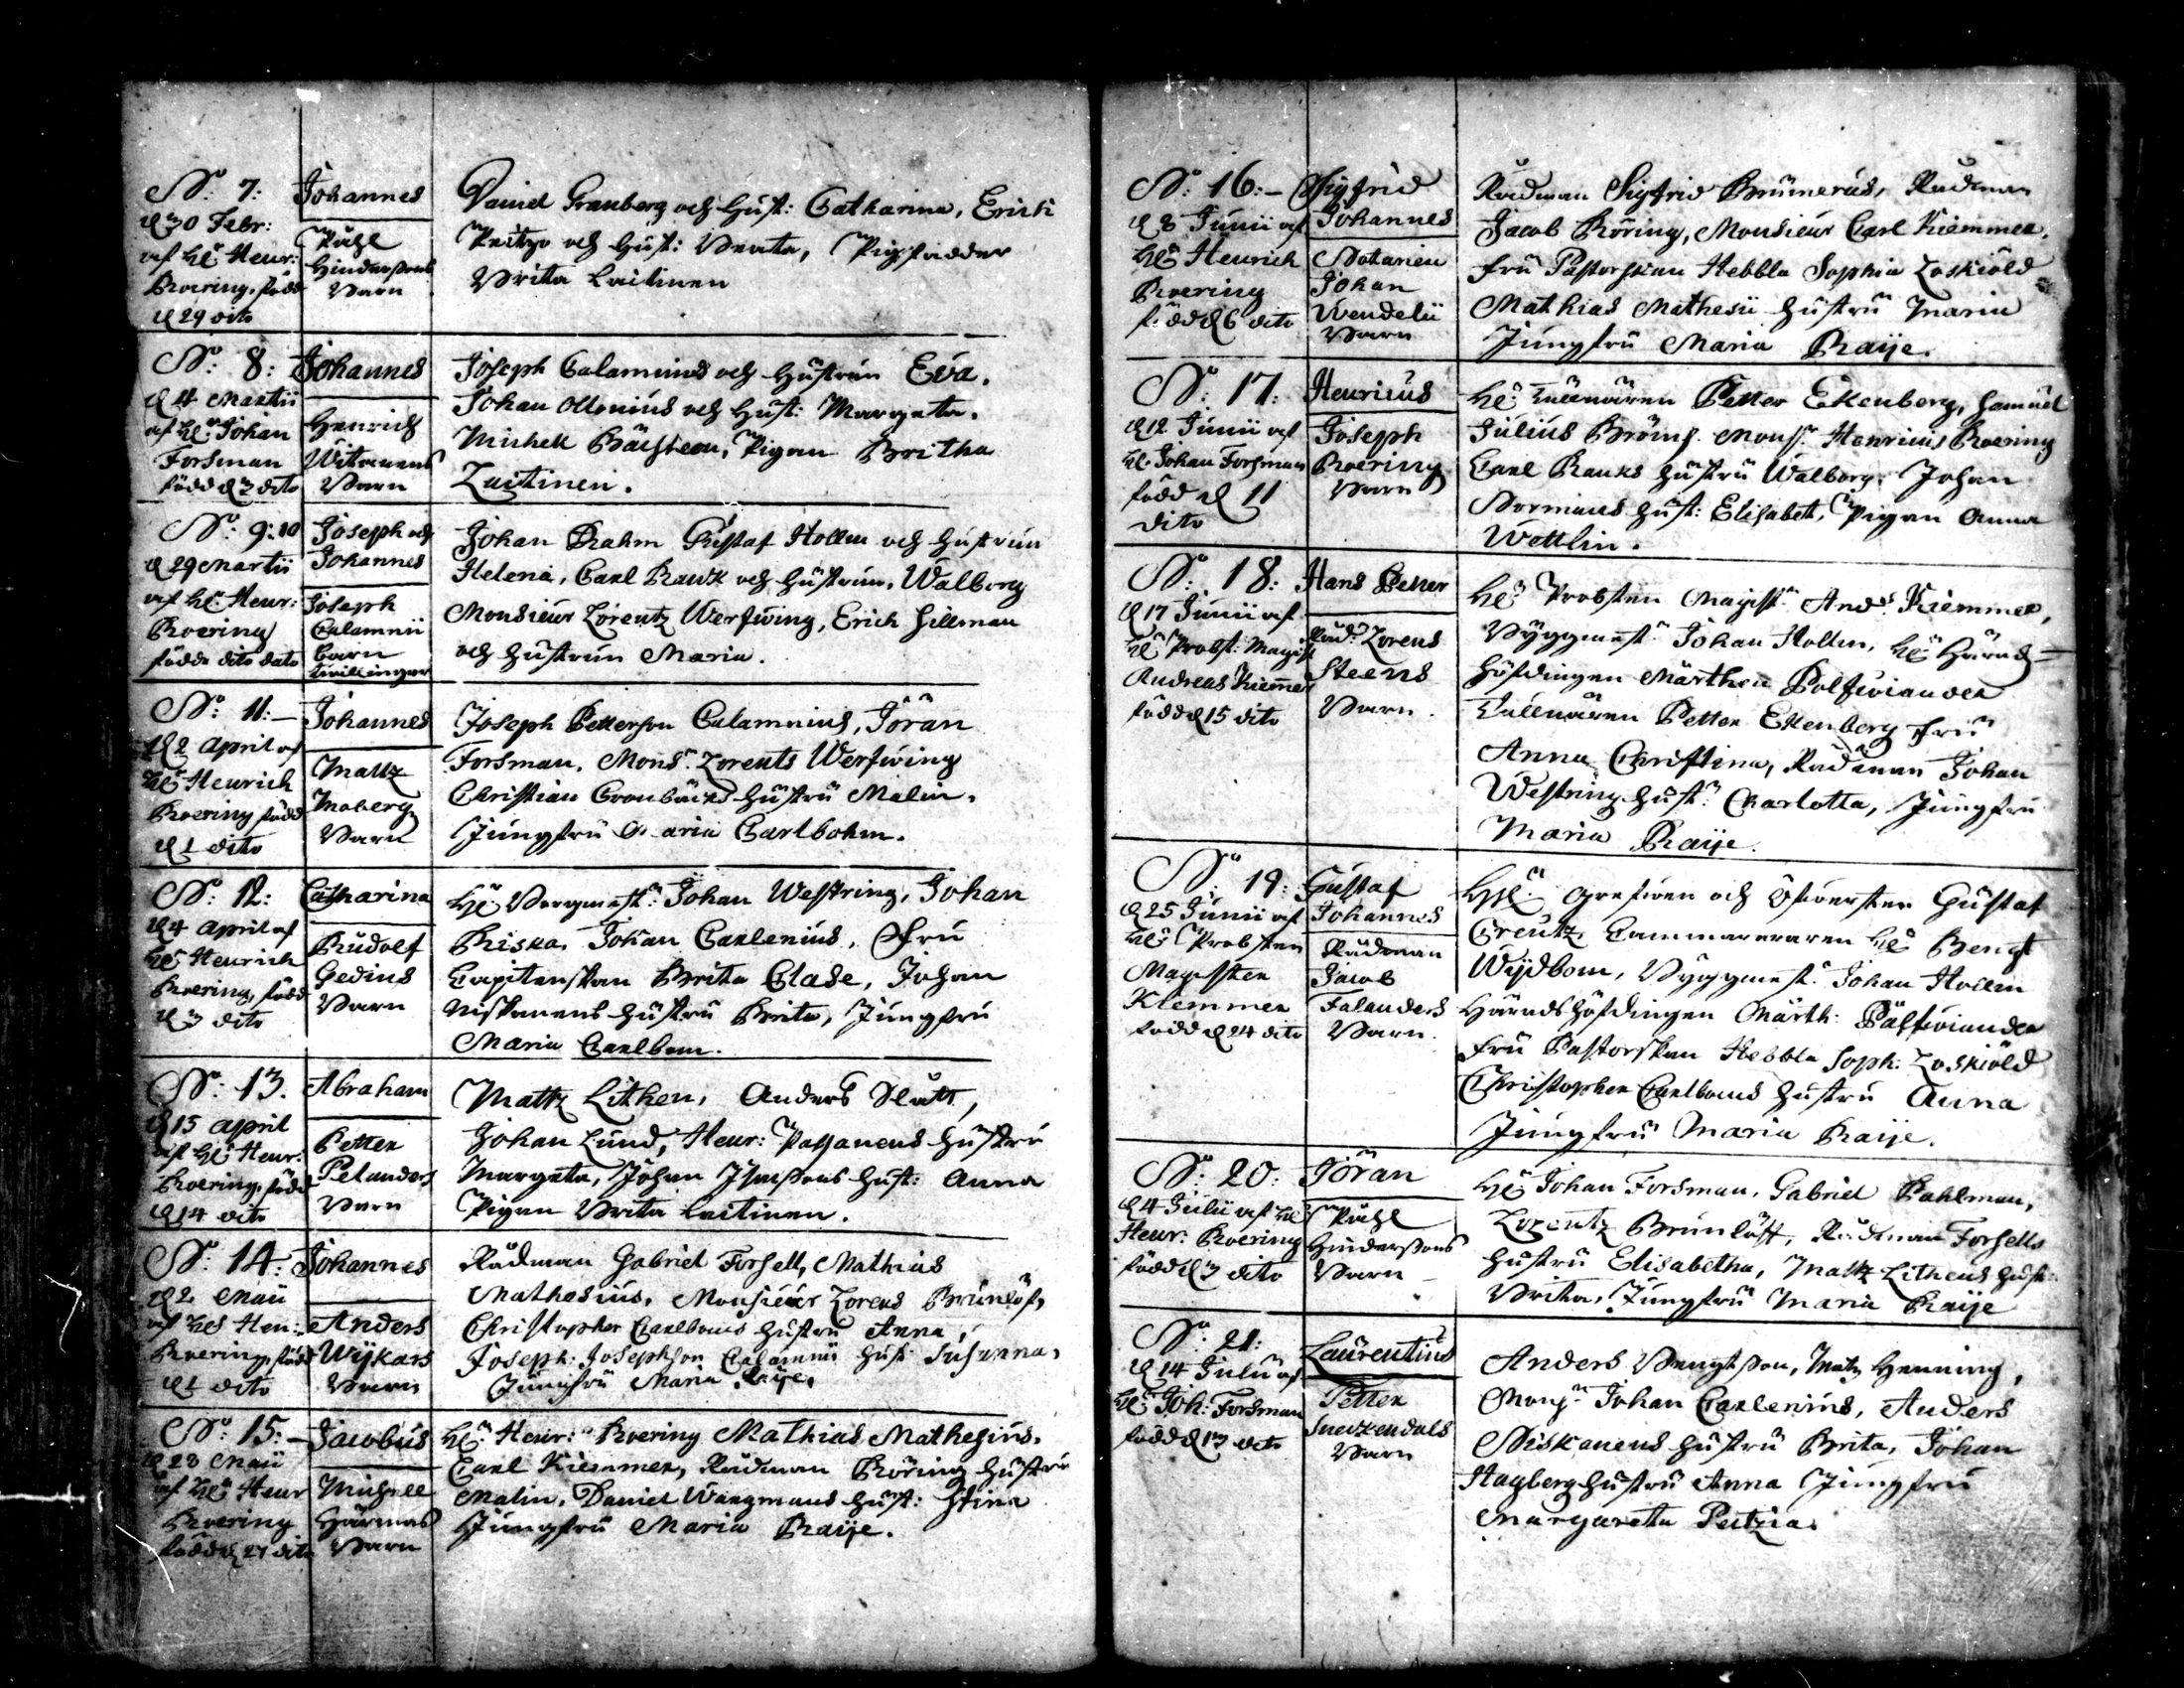 No 7:
d 30 Febr:
af He: Henr:
Roering, född
d 29 dito
Johannes
Påhl
Hinderssons
Barn
Daniel Granberg och Hust: Catharina, Erich
Peitzo och Hust: Beata, Pig
Britta Laitinen
No 8:
d 4 Martii
af He: Johan
Forsman
född d 3 dito
Johannes
Henrich
Witmans
Barn
Joseph Calamnius och Hustrun Eva.
Johan Ollonius och Hust: Margeta.
Michell Pigan Britha
Laitinen.
No 9:10
d 29 Martii
af He: Henr:
Roering
födde dito dato
Joseph och
Johannes
Joseph
Calamnii
Barn
twillingar
Johan Brahm Gustaf Hollm och Hustrun
Helena, Carl Rauk och Hustrun, Walborg
Monsieur Lorentz Werfwing, Erich Hillman
och Hustrun Maria.
No 11:
d 2 April af
He: Henrich
Roering född
d 1 dito
Johannes
Mattz
Moberg
Barn
Joseph Petterson Calamnius, Jöran
Forsman, Mons: Lorents Werfwing
Christian Cronbäcks Hustru Malin,
Jungfru Maria Carlbohm.
No 12:
d 4 April af
He: Henrich
Roering, född
d 3 dito
Catharina
Rudolf
Gedius
Barn
He: Borgmest: Johan Westring, Johan
Riska, Johan Carlenius, Fru
Capitenskan Brita Clase, Johan
Niskanens Hustru Brita, Jungfru
Maria Carlbom.
No 13.
d 15 April
af He: Henr:
Roering, född
d 14 dito
Abraham
Petter
Pelanders
Barn
Mattz Lithen, Anders Slått,
Johan Lund, Henr: Passanens Hustru
Margeta, Johan Hust: Anna
Pigan Brita Laitinen.
No 14:
d 2 Maii
af He: Hen:
Roering, född
d 1 dito
Johannes
Anders
Wijkars
Barn
Rådman Gabriel Forsell, Mathias
Mathesius, Monsieur Lorens Brunlöf,
Christopher Carlboms Hustru Anna,
Joseph: Josephson Calamnii Hust: Susanna,
Jungfru Maria Raije.
No 15:
d 28 Maii
af He: Henr
Roering
född d 27 dito
Jacobus
Michell
Hårmas
Barn
He: Henr: Roering Mathias Mathesius.
Carl Kiemmer, Rådman Röring Hustru
Malin, Daniel Wangmans Hust: Stina
Jungfru Maria Raije.
No: 16:
d 8 Junii af
He: Henrich
Roering
född d 6 dito
Sigfrid
Johannes
Notarien
Johan
Wendelii
Barn
Rådman Sigfrid Brunnerus, Rådman
Jacob Röring, Monsieur Carl Kiemmer,
Fru Pastorskan Hebbla Sophia Loskiöld
Mathias Mathesii Hustru Maria
Jungfru Maria Raije.
No 17:
d 12 Junii af
He: Johan Forsman
född d 11
dito
Henricus
Joseph
Roering
Barn
He: Tullnären Petter Ekenberg, Samuel
Julius Bröms. Mons: Henricus Roering
Carl Rauks Hustru Walborg, Johan
Normans Hust: Elisabet, Pigan Anna
Wettlin.
No: 18:
d 17 Junii af
He: Probst: Magist
Andreas Kiemer
född d 15 dito
Hans Petter
Råd: Lorens
Steens
Barn
He: Probsten Magist: And: Kiemmer,
Byggmest: Johan Hollm, He: Härads=
Höfdingen Märthen Polfwiander
Tullnären Petter Ekenberg Fru
Anna Christina, Rådman Johan
Westring Hust: Charlotta, Jungfru
Maria Raije.
No: 19:
d 25 Junii af
He: Probsten
Magister
Klemmer
född d 24 dito
Gustaf
Johannes
Rådman
Jacob
Falanders
Barn
Grefwen och Öfwersten Gustaf
Creutz, Cammereraren He: Bengt
Wijdbom, Byggmest: Johan Hollm
Häradshöfdingen Märth: Pålfwiander
Fru Pastorskan Hebbla Soph: Loskiöld
Christopher Carlboms Hustru Anna
Jungfru Maria Raije.
No: 20:
d 4 Julii af He:
Henr: Roering
född d 3 dito
Jöran
Påhl
Hinderssons
Barn
He: Johan Forsman, Gabriel Pahlman,
Lorentz Brunlöff, Rådman Forsells
Hustru Elisabetha, Mattz Lithens Hust:
Brita, Jungfru Maria Raije
No: 21:
d 14 Julii af
He: Joh: Forsman
född d 13 dito
Laurentius
Petter
Barn
Anders Bengtsson, Matz Henning,
Mons: Johan Carlenius, Anders
Niskanens Hustru Brita, Johan
Hagberg Hustru Anna Jungfru
Margareta Peitzia.